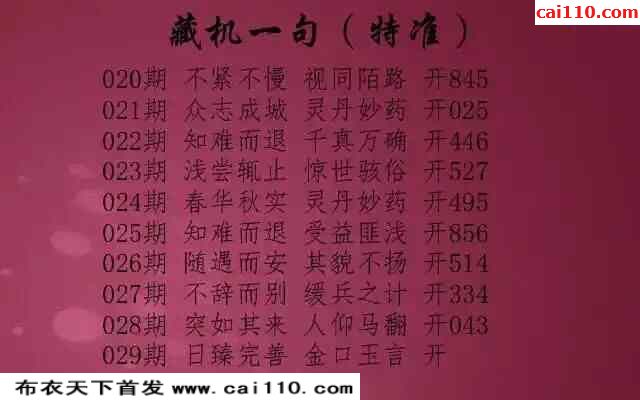 藏机一句（特准）
cai110.com
020期 不紧不慢 视同陌路 开845
021期 众志成城 灵丹妙药 开025
022期 知难而退 千真万确 开446
023期 浅尝辄止 惊世骇俗 开527
024期 春华秋实 灵丹妙药 开495
025期 知难而退 受益匪浅 开856
026期 随遇而安 其貌不扬 开514
027期 不辞而别 缓兵之计 开334
028期 突如其来 人仰马翻 开043
029期 日臻完善 金口玉言 开
布衣天下首发 www.cai110.com